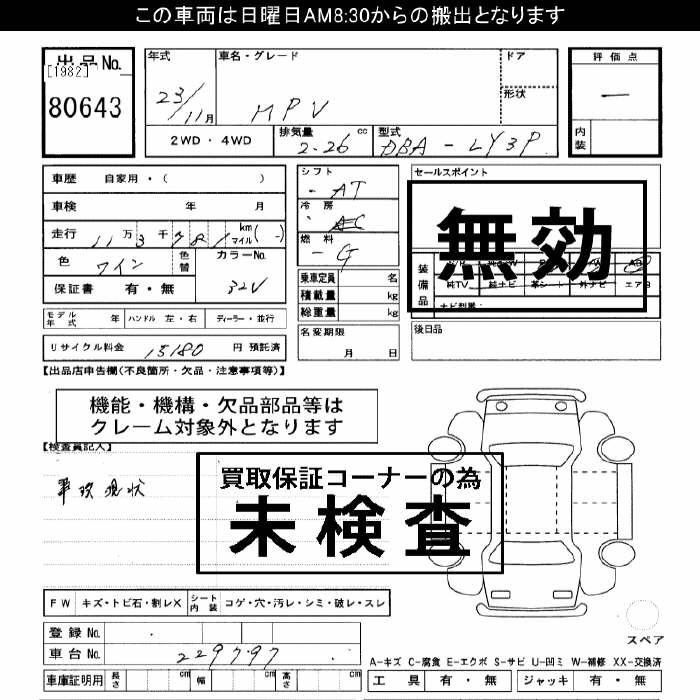 この車両は日曜日AM8:30からの搬出となります
出品No.
[1982]
80643
年式
23/11月
車名・グレード
MPV
ドア
形状
評価点
—
内装
2WD・4WD
排気量
2.26 cc
型式
DBA-LY3P
車歴 自家用・( )
車検 年 月
走行 11万3千781 km マイル(-)
色 ワイン
色替
カラーNo.
32V
保証書 有・無
シフト
-AT
冷房
AC
燃料
-G
乗車定員 名
積載量 kg
総重量 kg
セールスポイント
無効
装備品
純TV 純ナビ 革シート 外ナビ エアB
ナビ型番:
モデル年式 年 ハンドル 左・右 ディーラー・並行
名変期限
月 日
後日品
リサイクル料金 15180 円 預託済
【出品店申告欄(不良箇所・欠品・注意事項等)】
機能・機構・欠品部品等は
クレーム対象外となります
【検査員記入】
事故現状
買取保証コーナーの為
未検査
FW キズ・トビ石・割レX シート内装 コゲ・穴・汚レ・シミ・破レ・スレ
登録No.
車台No. 229797
スペア
A-キズ C-腐食 E-エクボ S-サビ U-凹ミ W-補修 XX-交換済
車庫証明用 長さ cm 幅 cm 高さ cm
工具 有・無 ジャッキ 有・無